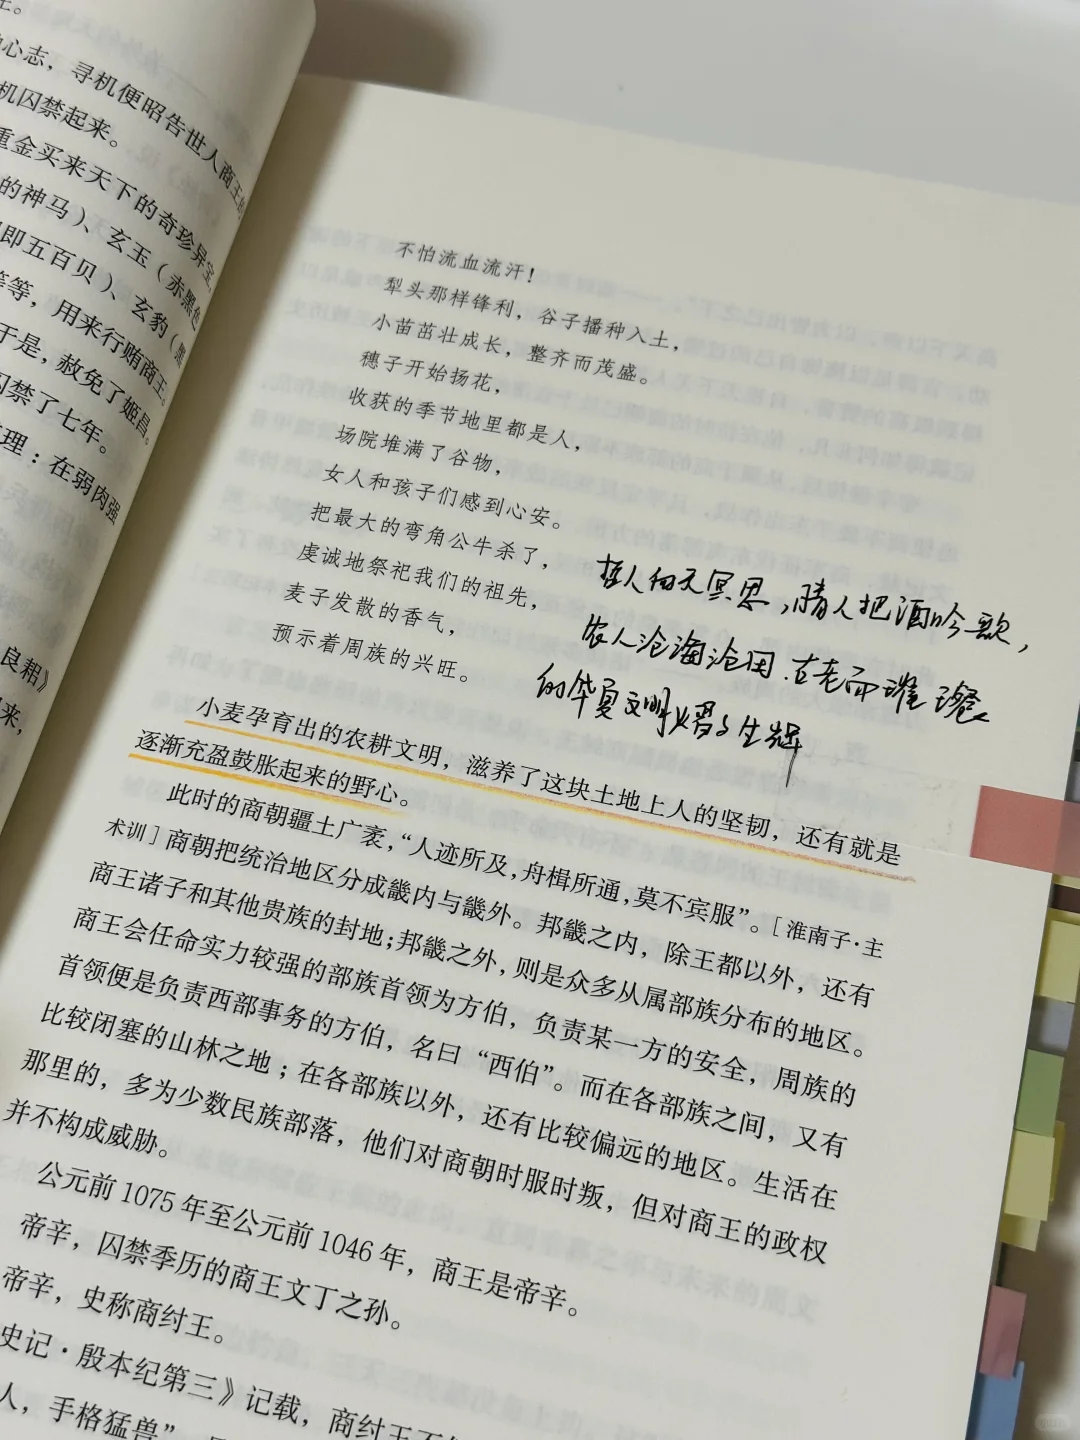 王。
心志，寻机便昭告世人商王的
机囚禁起来。
重金买来天下的奇珍异宝，
的神马）、玄玉（赤黑色
即五百贝）、玄豹（黑
等等，用来行贿商王。
于是，赦免了姬昌。
囚禁了七年。
理：在弱肉强
良耜》
来，
不怕流血流汗！
犁头那样锋利，谷子播种入土，
小苗茁壮成长，整齐而茂盛。
穗子开始扬花，
收获的季节地里都是人，
场院堆满了谷物，
女人和孩子们感到心安。
把最大的弯角公牛杀了，
虔诚地祭祀我们的祖先，
麦子发散的香气，
预示着周族的兴旺。
哲人向天冥思，情人把酒吟歌，
农人沧海沧田．古老而璀璨
的华夏文明熠熠生辉
小麦孕育出的农耕文明，滋养了这块土地上人的坚韧，还有就是
逐渐充盈鼓胀起来的野心。
此时的商朝疆土广袤，“人迹所及，舟楫所通，莫不宾服”。［淮南子·主
术训］商朝把统治地区分成畿内与畿外。邦畿之内，除王都以外，还有
商王诸子和其他贵族的封地；邦畿之外，则是众多从属部族分布的地区。
商王会任命实力较强的部族首领为方伯，负责某一方的安全，周族的
首领便是负责西部事务的方伯，名曰“西伯”。而在各部族之间，又有
比较闭塞的山林之地；在各部族以外，还有比较偏远的地区。生活在
那里的，多为少数民族部落，他们对商朝时服时叛，但对商王的政权
并不构成威胁。
公元前1075年至公元前1046年，商王是帝辛。
帝辛，囚禁季历的商王文丁之孙。
帝辛，史称商纣王。
史记·殷本纪第三》记载，商纣王不
人，手格猛兽”，